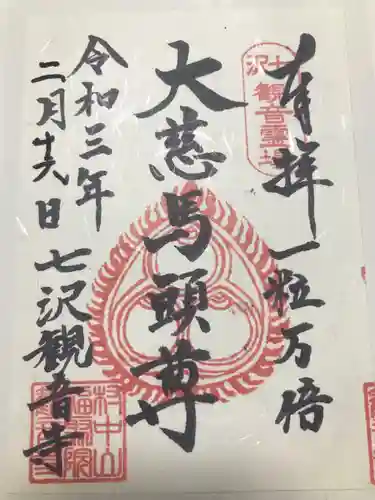 奉拝 一粒万倍
大慈馬頭尊
令和三年
二月十六日 七沢観音寺
七沢
観音霊場